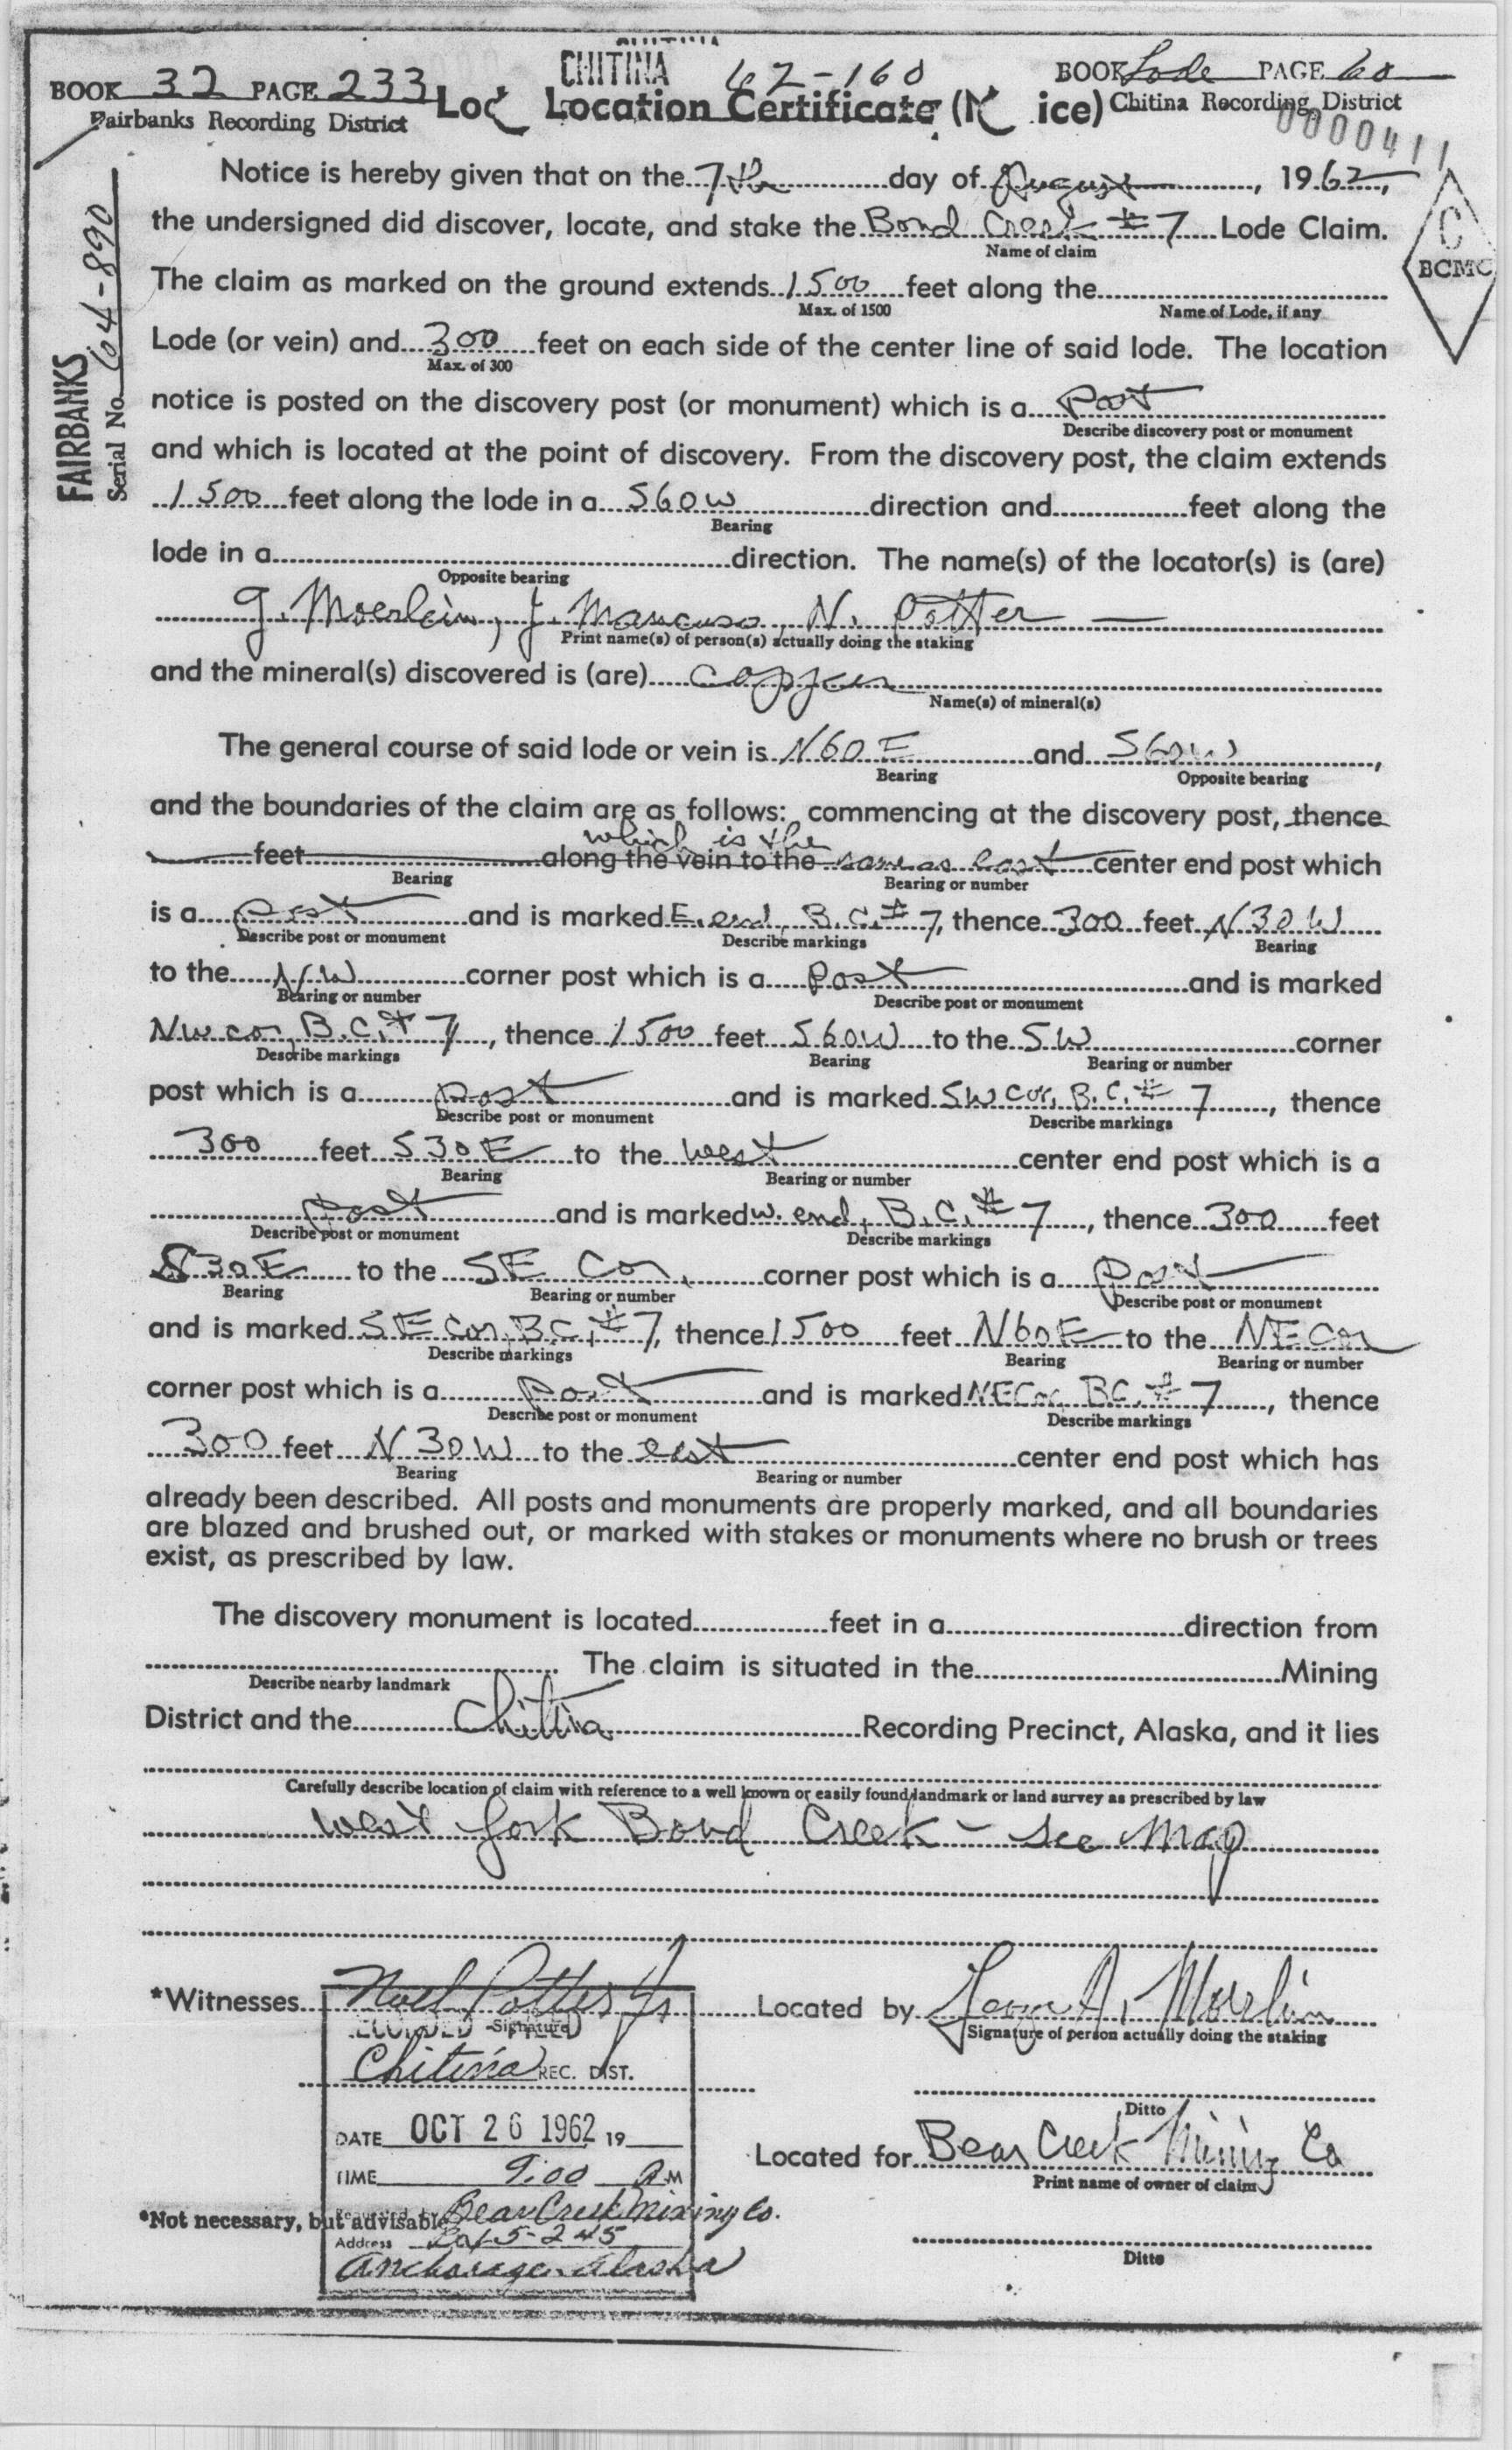 CHITINA
BOOK 32 PAGE 233
Fairbanks Recording District
CHITINA 62-160
BOOK Lode PAGE 60
Chitina Recording District
0000411
Location Certificate
FAIRBANKS
Serial No. 604-890
C
BCMC
Notice is hereby given that on the 7th day of August, 1962,
the undersigned did discover, locate, and stake the Bond Creek #7 Lode Claim.
Name of claim
The claim as marked on the ground extends 1500 feet along the
Max. of 1500 Name of Lode, if any
Lode (or vein) and 300 feet on each side of the center line of said lode. The location
Max. of 300
notice is posted on the discovery post (or monument) which is a Post
Describe discovery post or monument
and which is located at the point of discovery. From the discovery post, the claim extends
1500 feet along the lode in a S60W direction and feet along the
Bearing
lode in a direction. The name(s) of the locator(s) is (are)
Opposite bearing
G. Moerlein, J. Mancuso, N. Potter —
Print name(s) of person(s) actually doing the staking
and the mineral(s) discovered is (are) copper
Name(s) of mineral(s)
The general course of said lode or vein is N60E and S60W,
Bearing Opposite bearing
and the boundaries of the claim are as follows: commencing at the discovery post, thence
which is the
feet along the vein to the same as east center end post which
Bearing Bearing or number
is a Post and is marked E. end, B.C. #7, thence 300 feet N30W
Describe post or monument Describe markings Bearing
to the NW corner post which is a Post and is marked
Bearing or number Describe post or monument
NW cor, B.C. #7, thence 1500 feet S60W to the SW corner
Describe markings Bearing Bearing or number
post which is a post and is marked SW Cor, B.C. #7, thence
Describe post or monument Describe markings
300 feet S30E to the west center end post which is a
Bearing Bearing or number
post and is marked w. end, B.C. #7, thence 300 feet
Describe post or monument Describe markings
S30E to the SE Cor. corner post which is a Post
Bearing Bearing or number Describe post or monument
and is marked SE Cor, B.C. #7, thence 1500 feet N60E to the NE Cor
Describe markings Bearing Bearing or number
corner post which is a Post and is marked NE Cor, BC. #7, thence
Describe post or monument Describe markings
300 feet N30W to the east center end post which has
Bearing Bearing or number
already been described. All posts and monuments are properly marked, and all boundaries
are blazed and brushed out, or marked with stakes or monuments where no brush or trees
exist, as prescribed by law.
The discovery monument is located feet in a direction from
The claim is situated in the Mining
Describe nearby landmark
District and the Chitina Recording Precinct, Alaska, and it lies
Carefully describe location of claim with reference to a well known or easily found landmark or land survey as prescribed by law
West fork Bond Creek - see map
*Witnesses Noel Potter Jr Located by George A. Moerlein
RECORDED Signature Signature of person actually doing the staking
Chitina REC. DIST.
Ditto
DATE OCT 26 1962 19
Located for Bear Creek Mining Co
TIME 9:00 A M Print name of owner of claim
Bear Creek Mining Co.
*Not necessary, but advisable
Address 5-245
Anchorage Alaska
Ditto